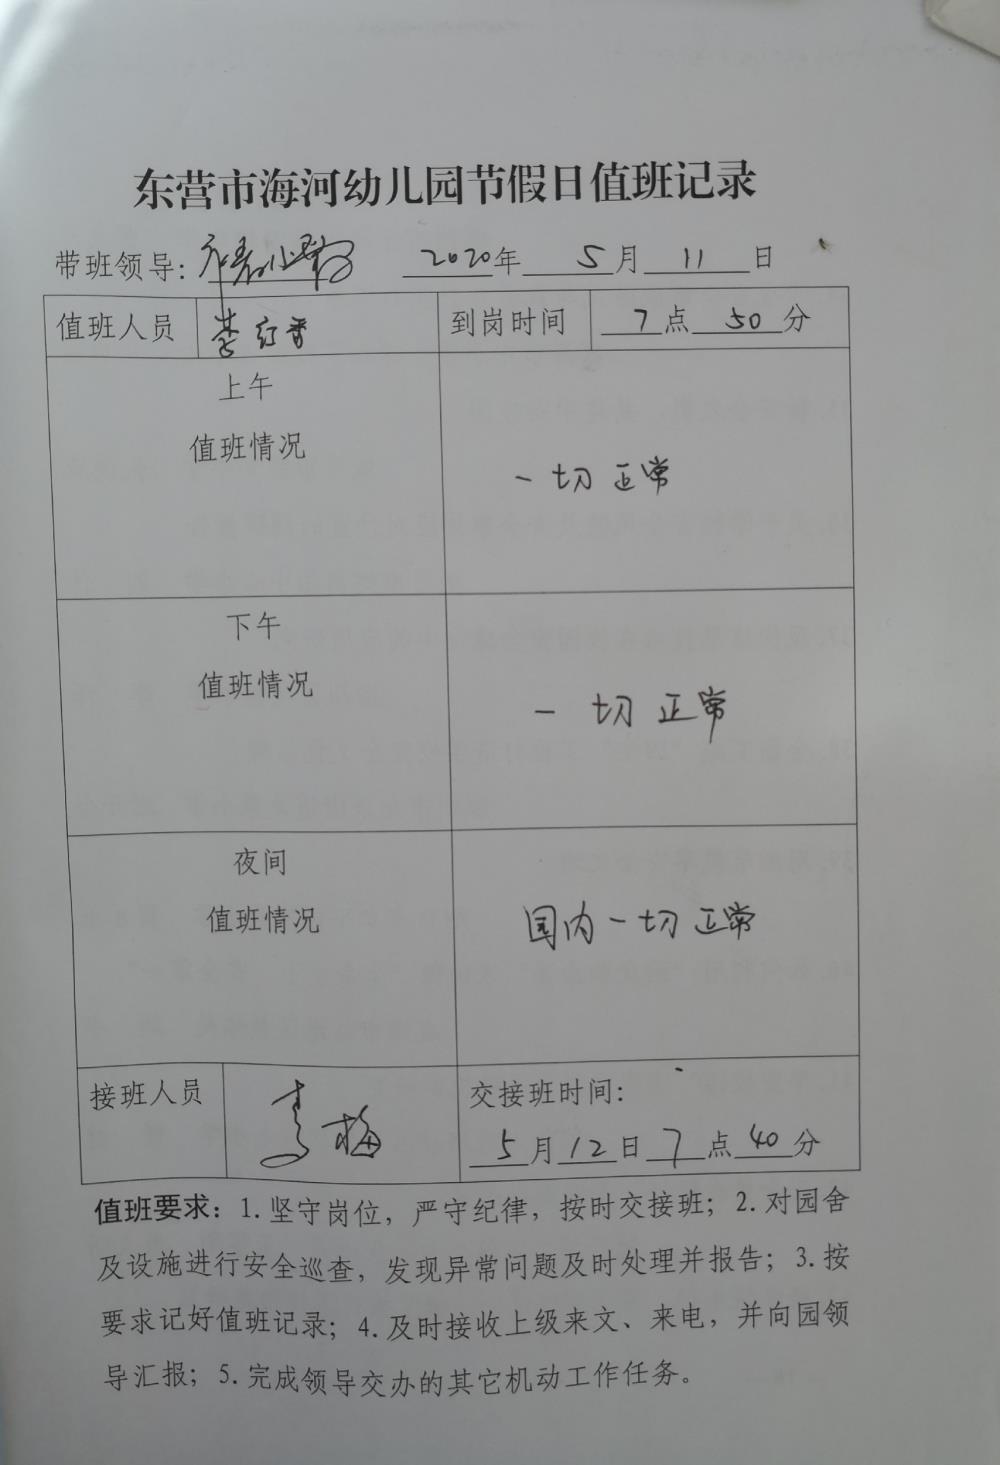 东营市海河幼儿园节假日值班记录
带班领导: 2020年 5月 11日
值班人员 李红香 到岗时间 7点 50分
上午
值班情况
一切正常
下午
值班情况
一切正常
夜间
值班情况
园内一切正常
接班人员 梅 交接班时间:
5月12日7点40分
值班要求: 1.坚守岗位, 严守纪律, 按时交接班; 2.对园舍
及设施进行安全巡查, 发现异常问题及时处理并报告; 3.按
要求记好值班记录; 4.及时接收上级来文、来电, 并向园领
导汇报; 5.完成领导交办的其它机动工作任务。